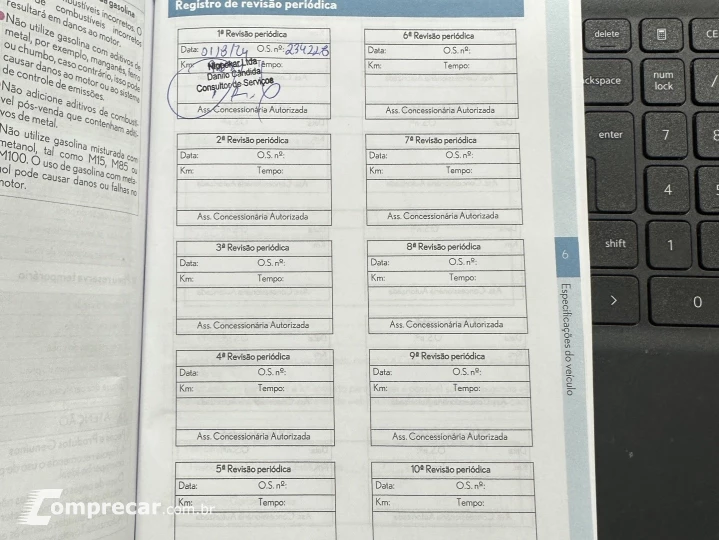 de gasolina
combustíveis incorretos. O
de combustíveis incorretos
resultará em danos ao motor.
Não utilize gasolina com aditivos de
metal, por exemplo, manganês, ferro
ou chumbo, caso contrário, isso pode
causar danos ao motor ou ao sistema
de controle de emissões.
Não adicione aditivos de combustí-
vel pós-venda que contenham aditi-
vos de metal.
Não utilize gasolina misturada com
metanol, tal como M15, M85 ou
M100. O uso de gasolina com meta-
nol pode causar danos ou falhas no
motor.
Registro de revisão periódica
1ª Revisão periódica
Data: O.S. nº: 234228
Km: Tempo:
Danilo Candida
Consultor de Serviços
Ass. Concessionária Autorizada
2ª Revisão periódica
Data: O.S. nº:
Km: Tempo:
Ass. Concessionária Autorizada
3ª Revisão periódica
Data: O.S. nº:
Km: Tempo:
Ass. Concessionária Autorizada
4ª Revisão periódica
Data: O.S. nº:
Km: Tempo:
Ass. Concessionária Autorizada
5ª Revisão periódica
Data: O.S. nº:
Km: Tempo:
6ª Revisão periódica
Data: O.S. nº:
Km: Tempo:
Ass. Concessionária Autorizada
7ª Revisão periódica
Data: O.S. nº:
Km: Tempo:
Ass. Concessionária Autorizada
8ª Revisão periódica
Data: O.S. nº:
Km: Tempo:
Ass. Concessionária Autorizada
9ª Revisão periódica
Data: O.S. nº:
Km: Tempo:
Ass. Concessionária Autorizada
10ª Revisão periódica
Data: O.S. nº:
Km: Tempo:
6
Especificações do veículo
delete
CE
ckspace
num
lock
/
enter
7
8
4
5
shift
1
>
0
Comprecar.com.br